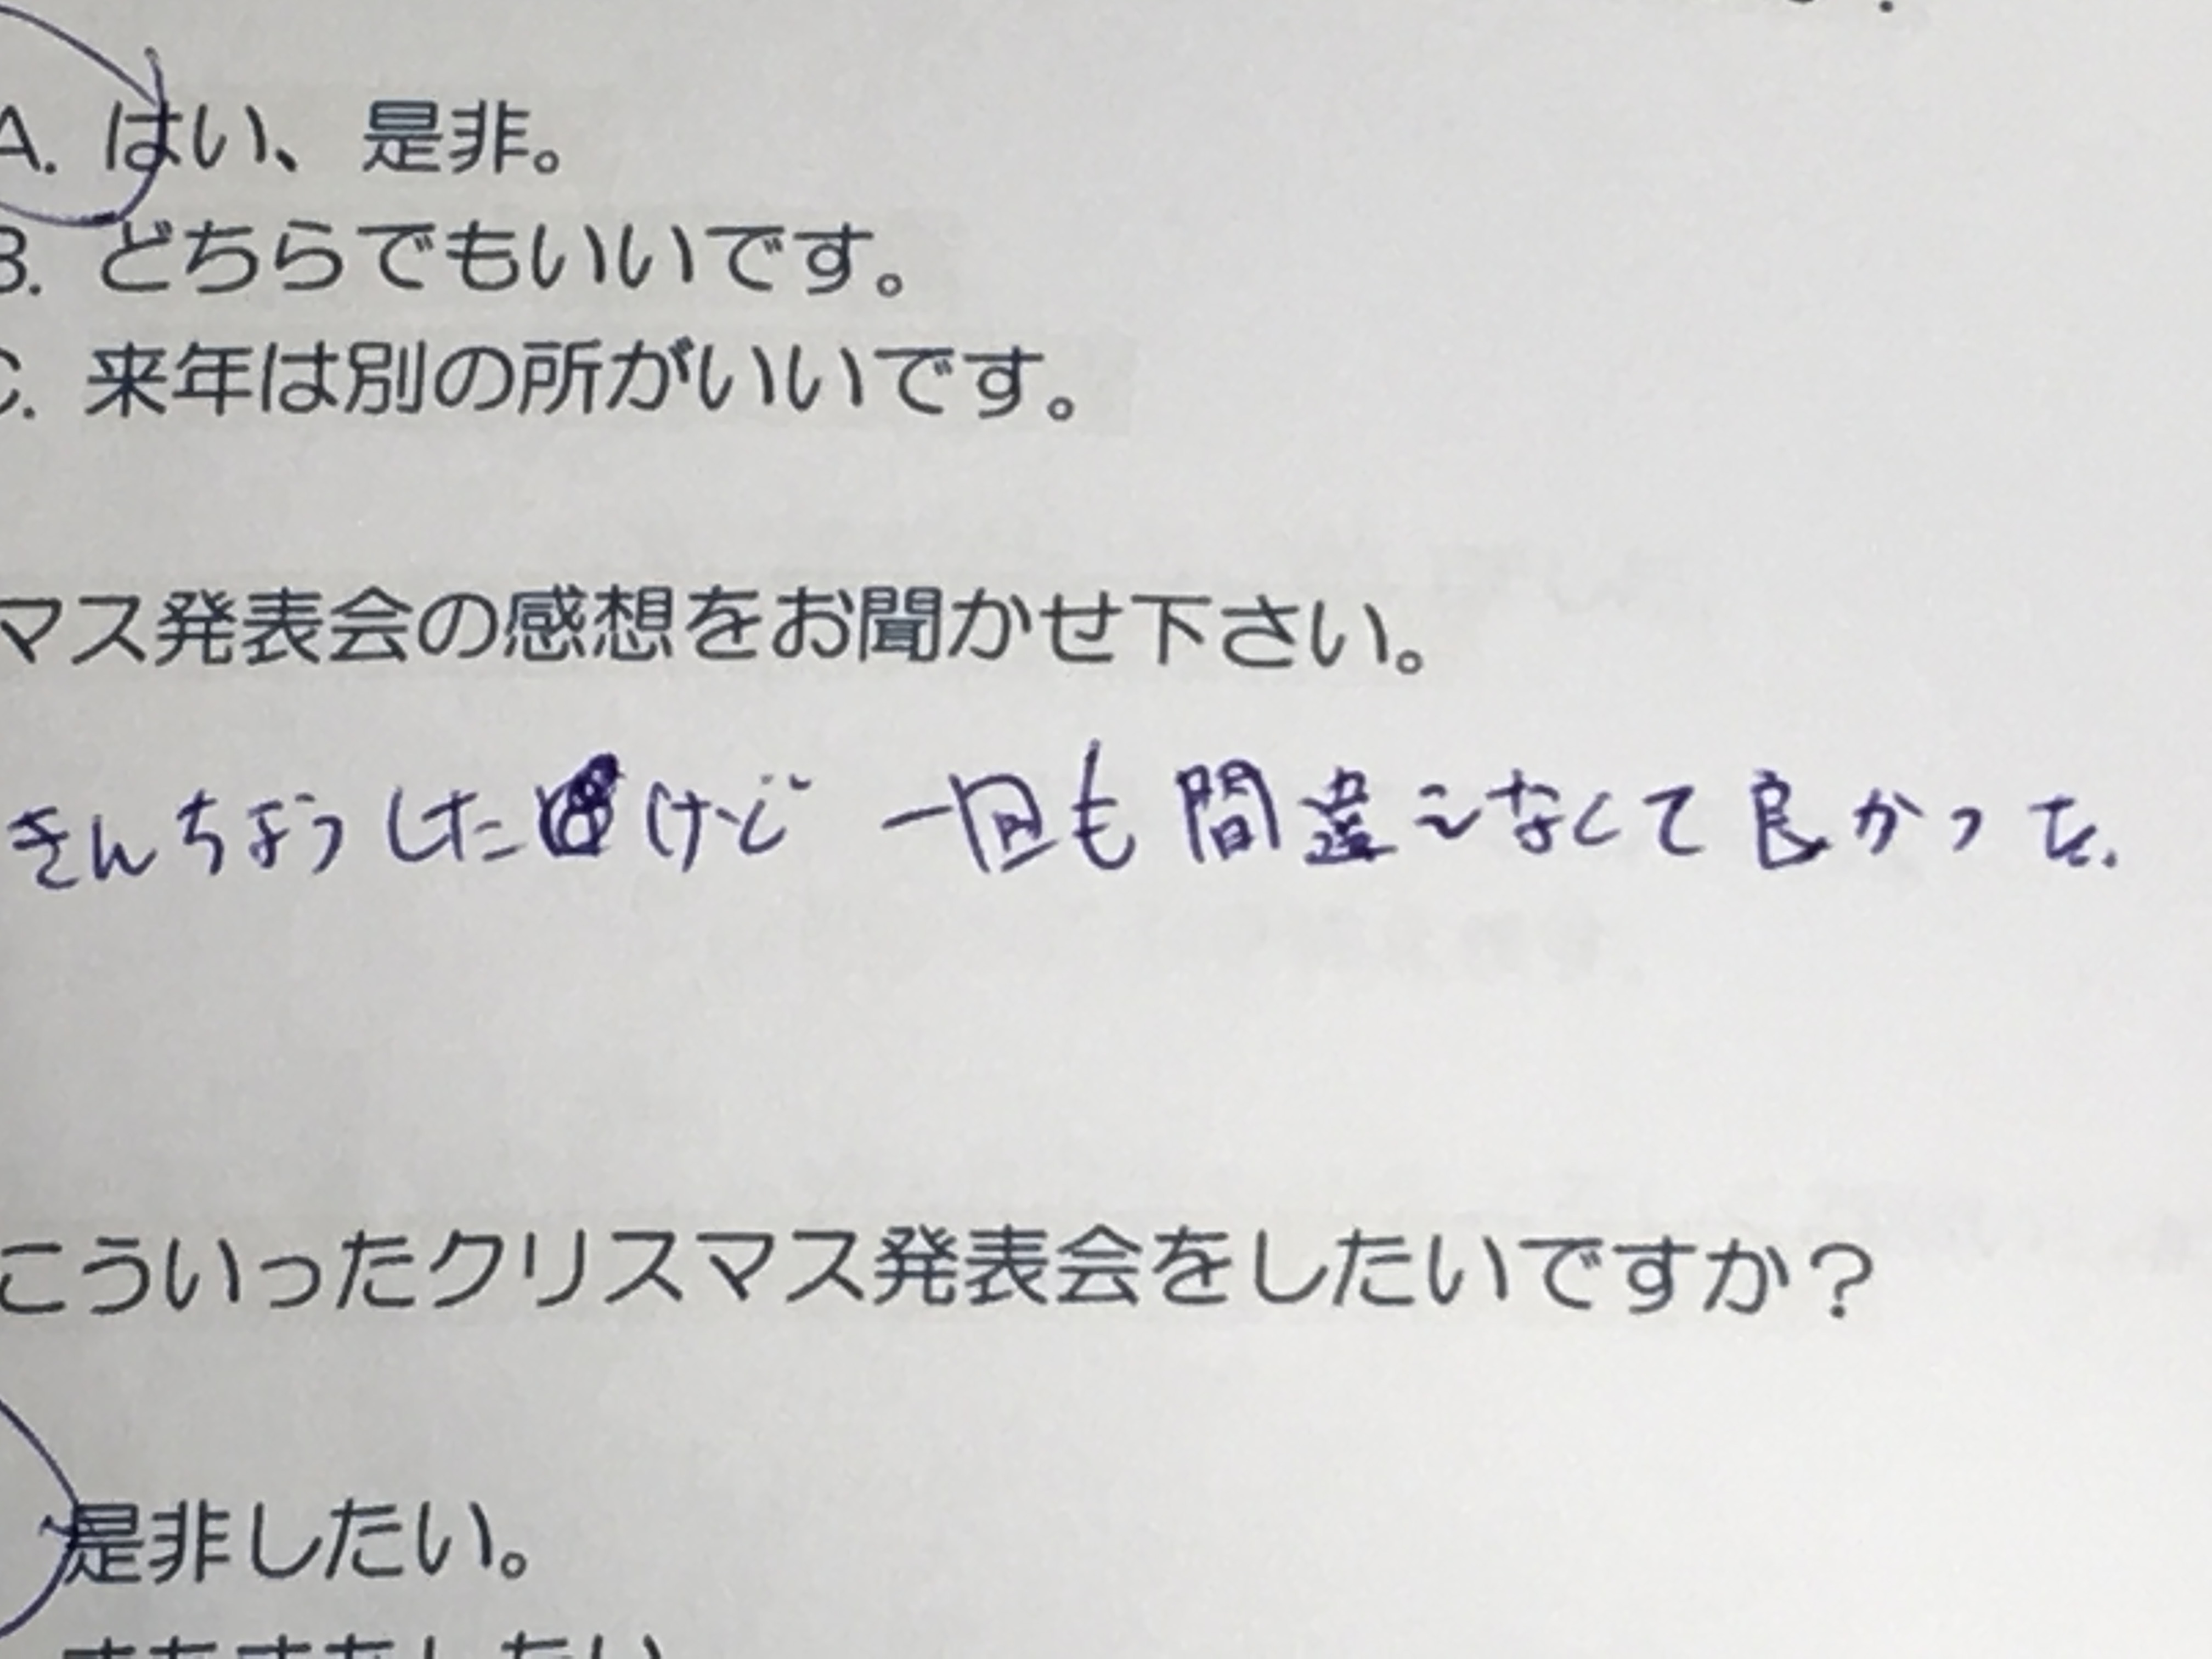 A. はい、是非。
B. どちらでもいいです。
C. 来年は別の所がいいです。
マス発表会の感想をお聞かせ下さい。
きんちょうしたけど 一回も間違えなくて良かった.
こういったクリスマス発表会をしたいですか?
是非したい。
まあまあしたい